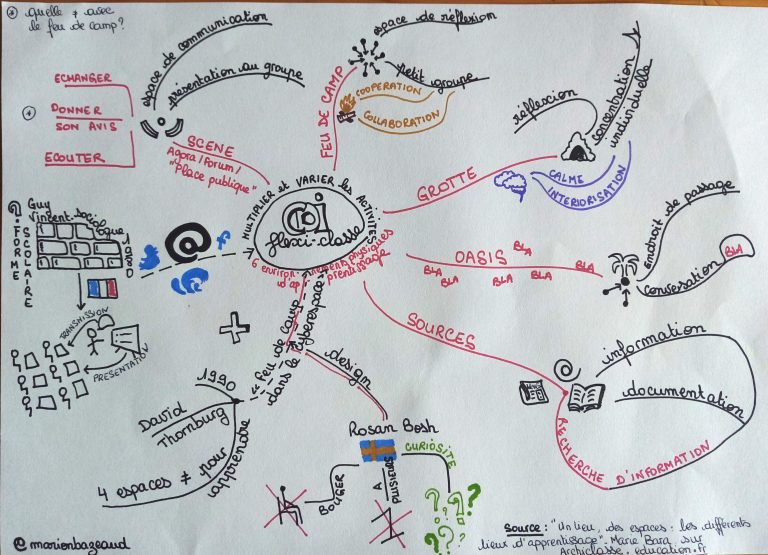 * quelle ≠ avec
le feu de camp?
ECHANGER
* DONNER
SON AVIS
ECOUTER
espace de communication
présentation au groupe
SCENE
Agora/Forum/
"Place publique"
FEU DE CAMP
espace de réflexion
petit groupe
COOPERATION
COLLABORATION
GROTTE
réflexion
concentration
individuelle
CALME
INTERIORISATION
MULTIPLIER et VARIER les ACTIVITES
flexi-classe
6 environnements physiques
d'apprentissage
OASIS
BLA
BLA
BLA
BLA
BLA
BLA
endroit de passage
conversation
BLA
SOURCES
information
documentation
RECHERCHE D'INFORMATION
Guy
Vincent sociologue
1980
FORME
SCOLAIRE
@
f
TRANSMISSION
PRESENTATION
+
"feu de camp
dans le cyberespace"
1990
David
Thornburg
4 espaces ≠ pour
apprendre
design
Rosan Bosh
CURIOSITE
BOUGER
A
PLUSIEURS
? ? ? ? ?
@marionbazeaud
Source: "Un lieu, des espaces: les différents
lieux d'apprentissage". Marie Bara, sur
Archiclasse.education.fr